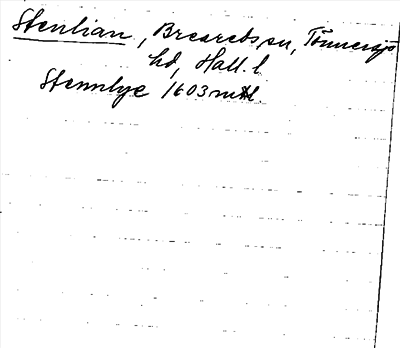 Stenlian, Breareds sn, Tönnersjö
hd, Hall. l.
Stennlye 1603 mtl.